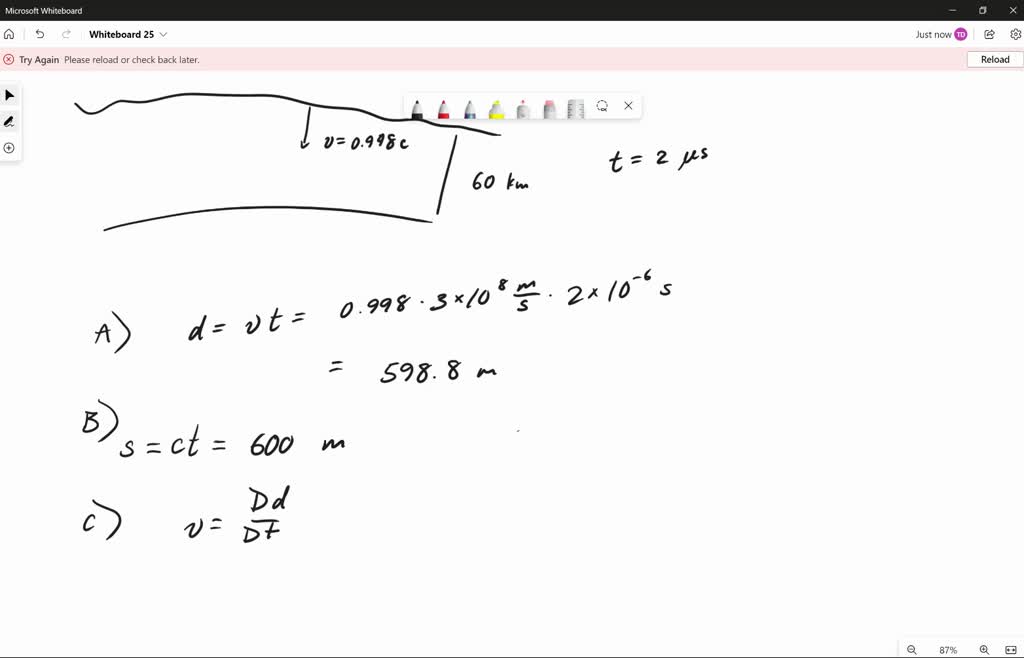 Microsoft Whiteboard
Whiteboard 25
Just now TD
Try Again Please reload or check back later.
Reload
v = 0.998 c
60 km
t = 2 μs
A) d = vt = 0.998 · 3 × 10^8 m/s · 2 × 10^-6 s
= 598.8 m
B) s = ct = 600 m
C) v = Dd/Dt
87%